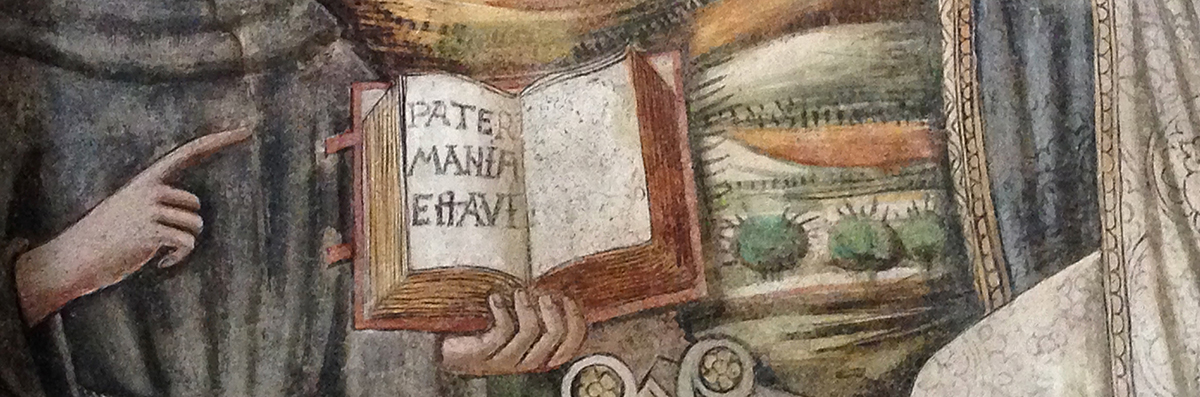 PATER
MANIF
EſtAVI